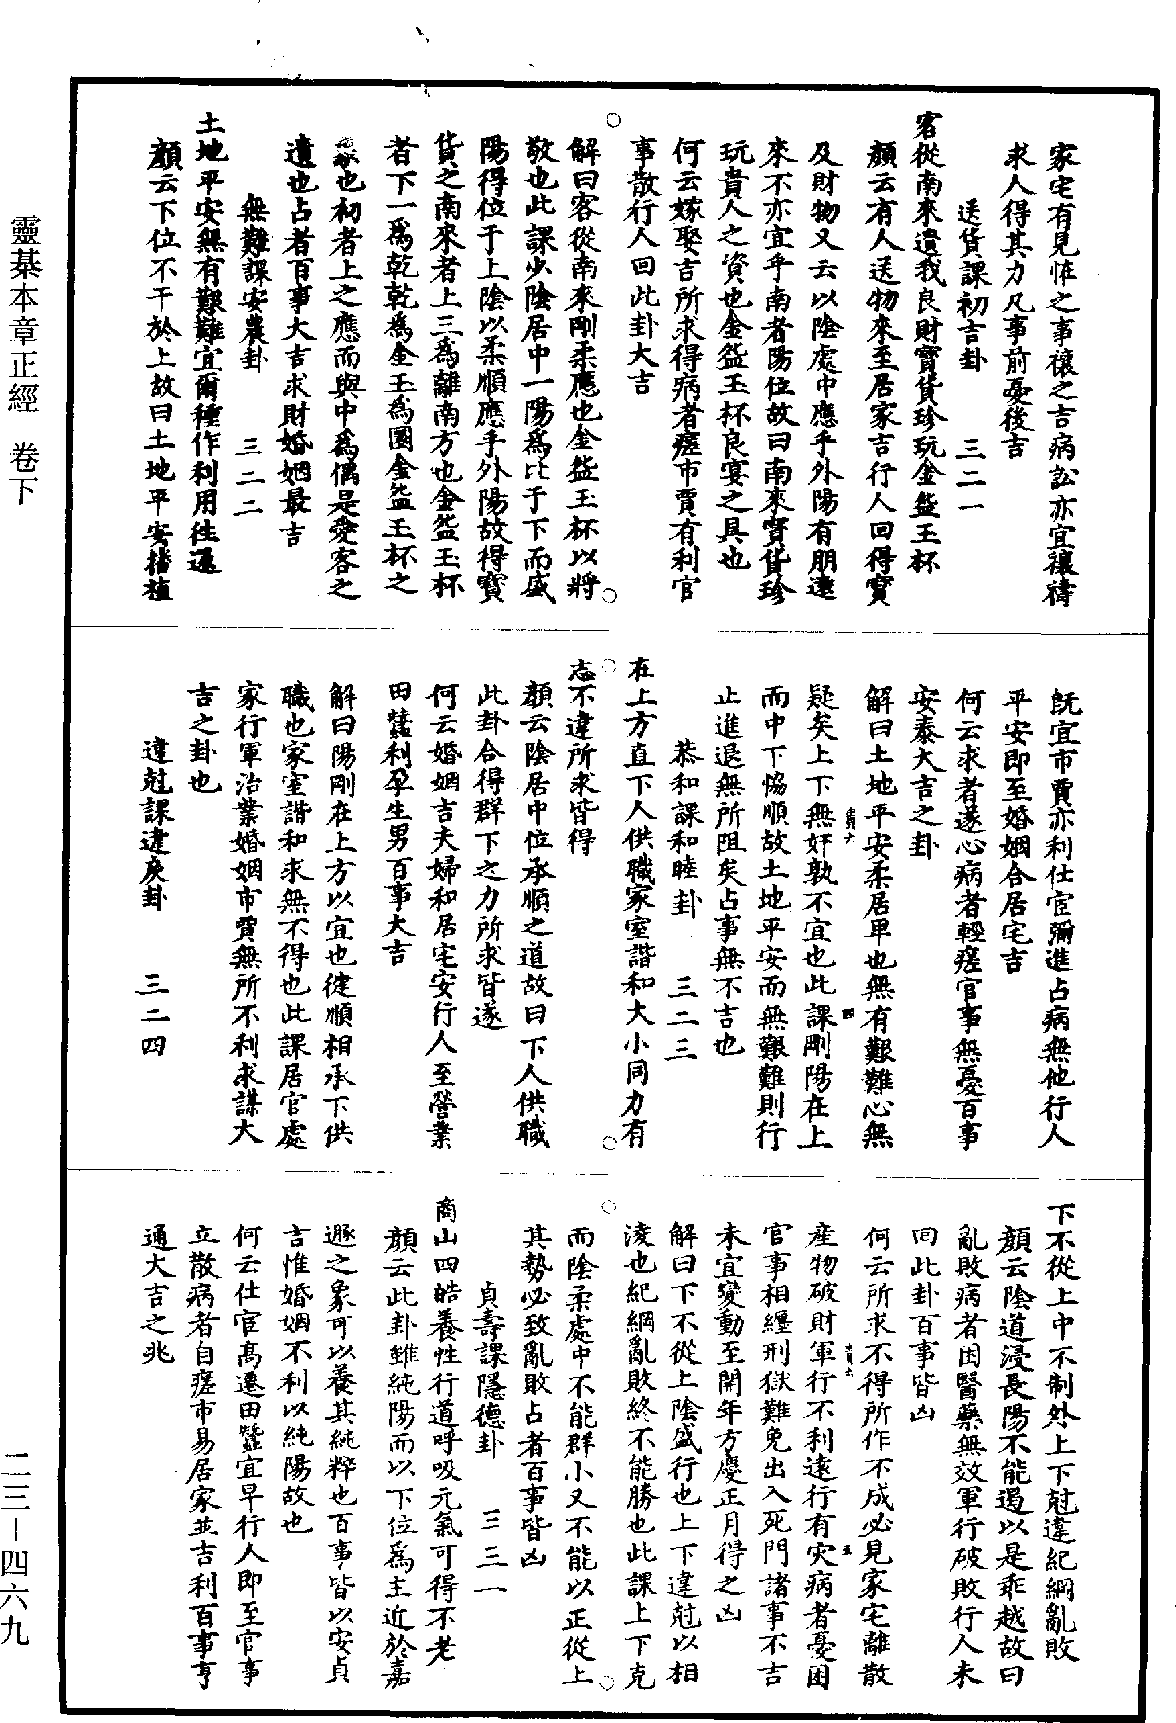 家宅有見怪之事禳之吉病訟亦宜禳禱
求人得其力凡事前憂後吉
送貨課初吉卦　三二一
客從南來遺我良財寶貨珍玩金盌玉杯
顏云有人送物來至居家吉行人回得寶
及財物又云以陰處中應乎外陽有朋遠
來不亦宜乎南者陽位故曰南來寶貨珍
玩貴人之資也金盌玉杯良宴之具也
何云嫁娶吉所求得病者瘥市賈有利官
事散行人回此卦大吉
解曰客從南來剛柔應也金盌玉杯以將
敬也此課少陰居中一陽爲比于下而盛
陽得位于上陰以柔順應乎外陽故得寶
貨之南來者上三爲離南方也金盌玉杯
者下一爲乾乾爲金玉爲圜金盌玉杯之
象也初者上之應而與中爲偶是愛客之
遺也占者百事大吉求財婚姻最吉
無難課安農卦　三二二
土地平安無有艱難宜爾種作利用往還
顏云下位不干於上故曰土地平安播植
既宜市賈亦利仕宦彌進占病無他行人
平安即至婚姻合居宅吉
何云求者遂心病者輕瘥官事無憂百事
安泰大吉之卦
解曰土地平安柔居卑也無有艱難心無
疑矣上下無奸孰不宜也此課剛陽在上
而中下恊順故土地平安而無艱難則行
止進退無所阻矣占事無不吉也
恭和課和睦卦　三二三
在上方直下人供職家室諧和大小同力有
志不違所求皆得
顏云陰居中位承順之道故曰下人供職
此卦合得群下之力所求皆遂
何云婚姻吉夫婦和居宅安行人至營業
田蠶利孕生男百事大吉
解曰陽剛在上方以宜也健順相承下供
職也家室諧和求無不得也此課居官處
家行軍治業婚姻市賈無所不利求謀大
吉之卦也
違尅課違戾卦　三二四
下不從上中不制外上下尅違紀綱亂敗
顏云陰道浸長陽不能遏以是乖越故曰
亂敗病者困醫藥無效軍行破敗行人未
回此卦百事皆凶
何云所求不得所作不成必見家宅離散
産物破財軍行不利遠行有灾病者憂困
官事相纏刑獄難免出入死門諸事不吉
未宜變動至開年方慶正月得之凶
解曰下不從上陰盛行也上下違尅以相
淩也紀綱亂敗終不能勝也此課上下克
而陰柔處中不能群小又不能以正從上
其勢必致亂敗占者百事皆凶
貞壽課隱德卦　三三一
商山四皓養性行道呼吸元氣可得不老
顏云此卦雖純陽而以下位爲主近於嘉
遯之象可以養其純粹也百事皆以安貞
吉惟婚姻不利以純陽故也
何云仕宦高遷田蠶宜早行人即至官事
立散病者自瘥市易居家並吉利百事亨
通大吉之兆
靈棊本章正經　卷下
二三—四六九